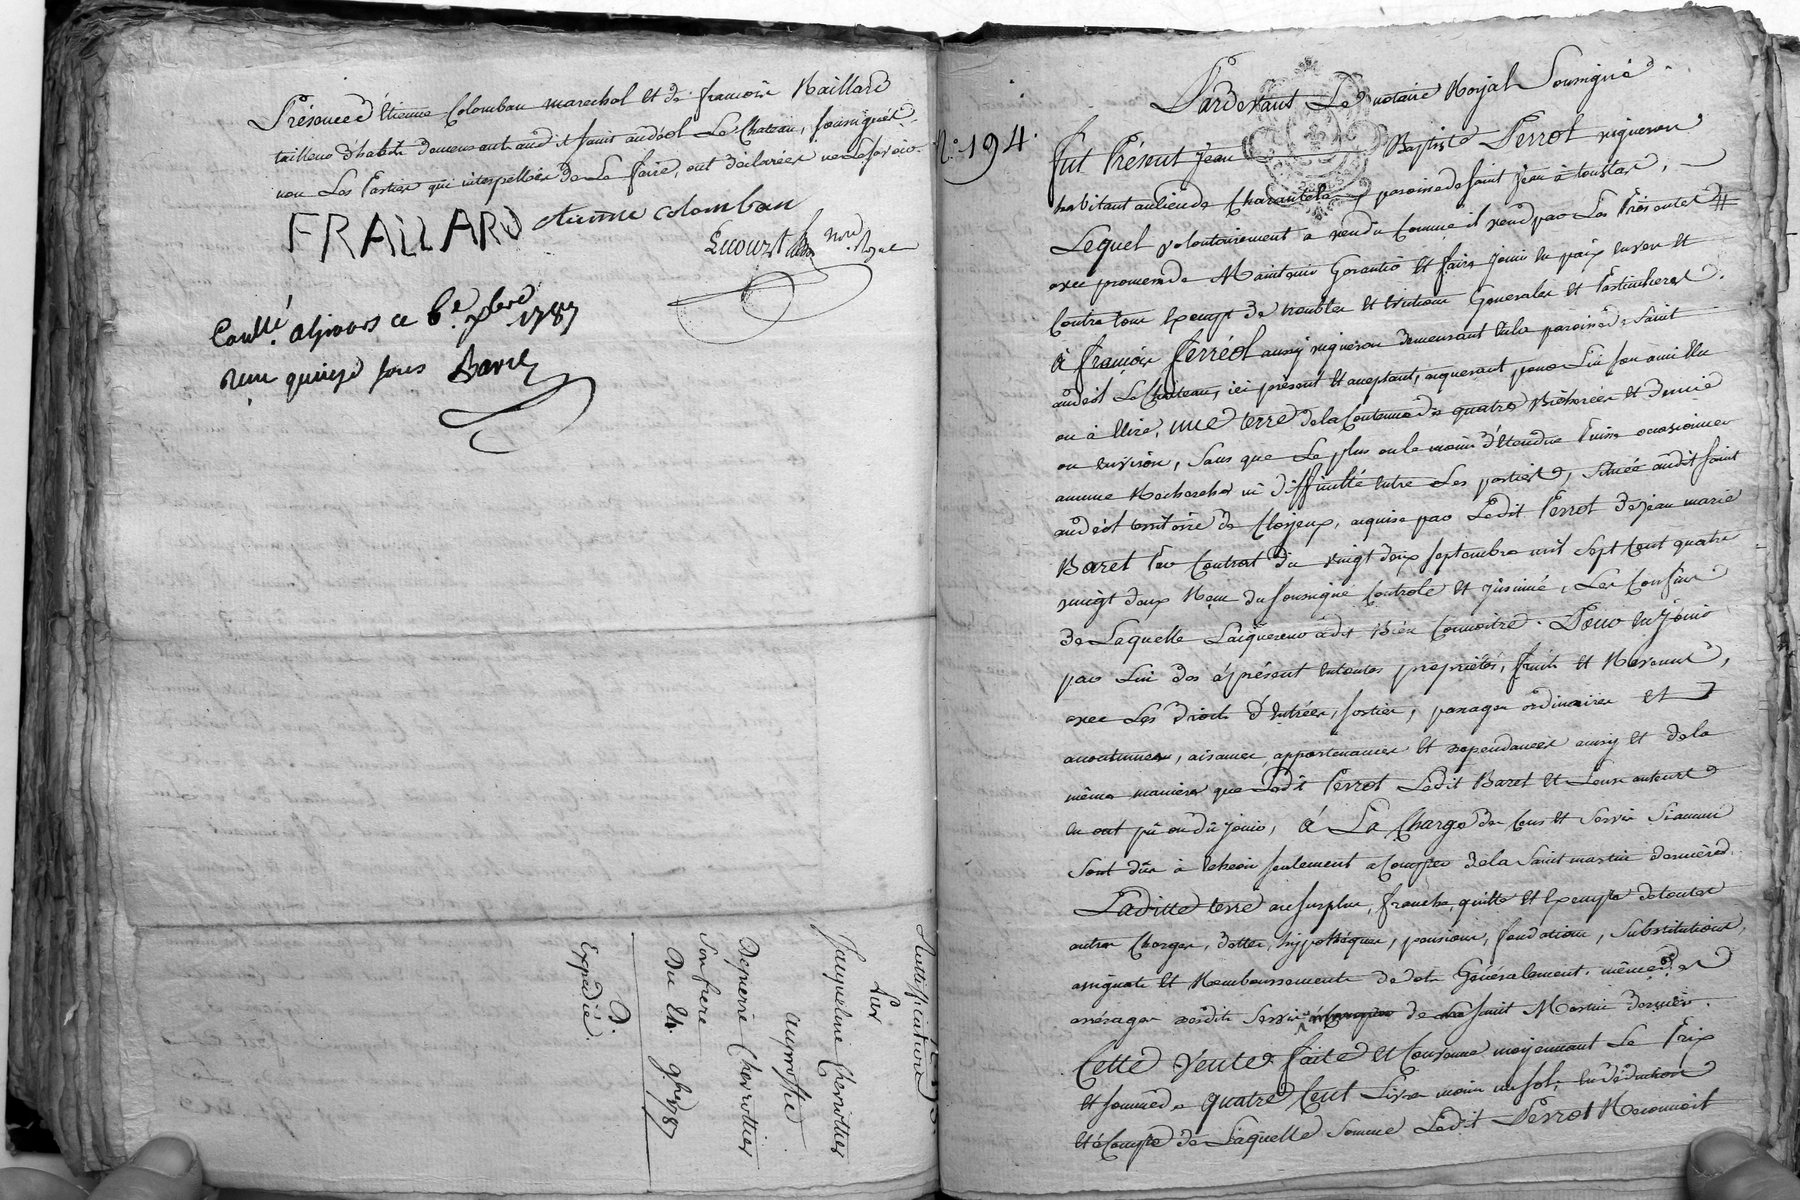 Présence d'étienne Colomban marechal et de françois Raillard
tailleur d'habits demeurants audit saint andeol Le Chateau, soussignés
non Les Parties qui interpellées de Le faire, ont déclarées ne Le savoir.
FRAILLARD etienne colomban
Lecourt nore. Royal
Conllé. a Givors ce 6e. xbre 1787
Reçu quinze sous Barre
Rattiffication
Par
Jacqueline Cherrottier
au proffit
De pierre Cherrottier
Son frere
Du 24. 9bre 1787
D.
Expedié.
N.° 194.
Pardevant Le notaire Royal Soussigné.
fut Présent Jean Baptiste Perrol vigneron
habitant au lieu de Charantelo paroisse de saint Jean à toulas,
Lequel volontairement a vendu comme il vend par Les Présentes
avec promesse de Maintenir Garantir et faire Jouir en paix envers et
Contre tous Exempt de troubles et Evictions Generales et Particulieres.
à françois ferréol aussy vigneron demeurant en la paroisse de Saint
andeol Le Chateau, ici présent et aceptant, acquereur pour Lui son ami Elu
ou à Elire, une terre de la Contenue de quatre Bicherées et demie
ou environ, sans que Le plus ou le moins d'étendue Puisse occasionner
aucune Recherche ni difficulté entre Les parties, située audit saint
andeol territoire de Clorjeux, acquise par Ledit Perrot de jean marie
Baret Par Contrat du vingt deux septembre mil sept Cent quatre
vingt deux Reçu du soussigné Controlé et insinué, Les Confins
de Laquelle L'acquereur a dit Bien Connoitre. Pour en Jouir
par Lui dès à présent en toutes propriétés, fruits et Revenus,
avec Les droits d'Entrées, sorties, passages ordinaires et
accoutumés, aisances, appartenances et dependances ainsy et de la
même maniere que Ledit Perrot Ledit Baret et Leurs auteurs
en ont pû ou dû jouir, à La Charge de Cens et Servis si aucuns
sont dûs à Echeoir seulement a Compter de la Saint martin derniere.
Laditte terre au surplus, franche, quitte et Exempte de toutes
autres Charges, dettes, hyppothèques, pensions, fondations, substitutions,
assignats et Remboursements de dots Généralement. même des
arrérages desdits Servis de La saint Martin dernier.
Cette Vente faite et Convenue moyennant Le Prix
et somme de quatre Cent Livres moins un sol, en déduction
et à Compte de Laquelle somme Ledit Perrot Reconnoit